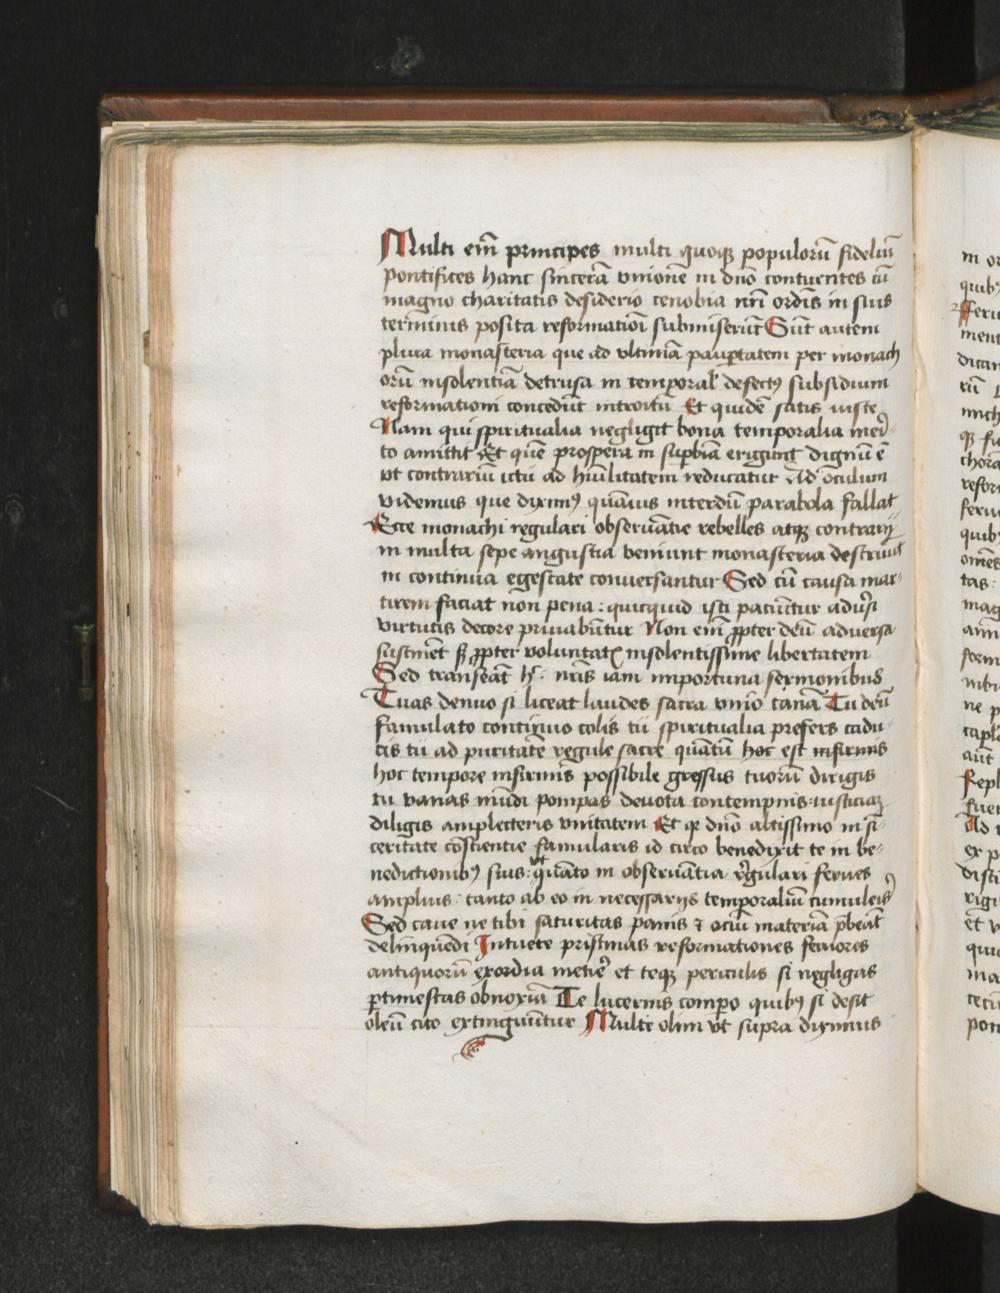 Multi em̄ principes multi quoqꝫ populorū fideliū
pontifices hanc sincerā vnionē in dn̄o contuentes cū
magno charitatis desiderio cenobia nr̄i ordīs in suis
terminis posita reformatiōi submiserūt Sūt autem
plura monasteria que ad vltimā paup̄tatem per monach
orū insolentiā detrusa in temporaľ defectꝰ subsidium
reformationi concedūt introitū Et quidē satis iuste
Nam qui spiritualia negligit bona temporalia mer̉⸗
to amittit Et quē prospera in sup̄biā erigunt dignū ē
vt contrariū ictu ad hūilitatem reducatur Ad oculum
videmus que diximꝰ quāuis interdū parabola fallat
Ecce monachi regulari obseruātie rebelles atqꝫ contrarij
in multa sepe angustia veniunt monasteria destruūt
in continua egestate conuersantur Sed cū causa mar⸗
tirem faciat non pena : quicquid isti patiūtur adūsi
virtutis decore priuabūtur Non em̄ ꝓpter deū aduersa
sustinēt sꝫ ꝓpter voluntatꝭ insolentissime libertatem
Sed transeāt h̄ : nr̄is iam importuna sermonibus
Tuas denuo si liceat laudes sacra vnio canā Tu deū
famulato continuo colis tu spiritualia prefers cadu
cis tu ad puritatē regule sacre quātū hoc est infirmis
hoc tempore infirmis possibile gressus tuorū dirigis
tu vanas mūdi pompas deuota contempnis : iusticiaꝫ
diligis amplecteris vnitatem Et qꝫ dn̄o altissimo in si⸗
ceritate cōscientie famularis id circo benedixit te in be⸗
nedictionibꝰ suis : vt quāto in obseruātia r̉gulari ferues
amplius : tanto ab eo in necessarijs temporaliū cumuleris
Sed caue ne tibi saturitas panis ⁊ ociū materiā p̄beāt
delinquēdi Intuere pristinas reformationes feruores
antiquorū exordia metir̉ et teqꝫ periculis si negligas
ꝑtimescas obnoxiā Te lucernis compo quibꝰ si desit
oleū cito extinguūtur Multe olim vt supra diximus